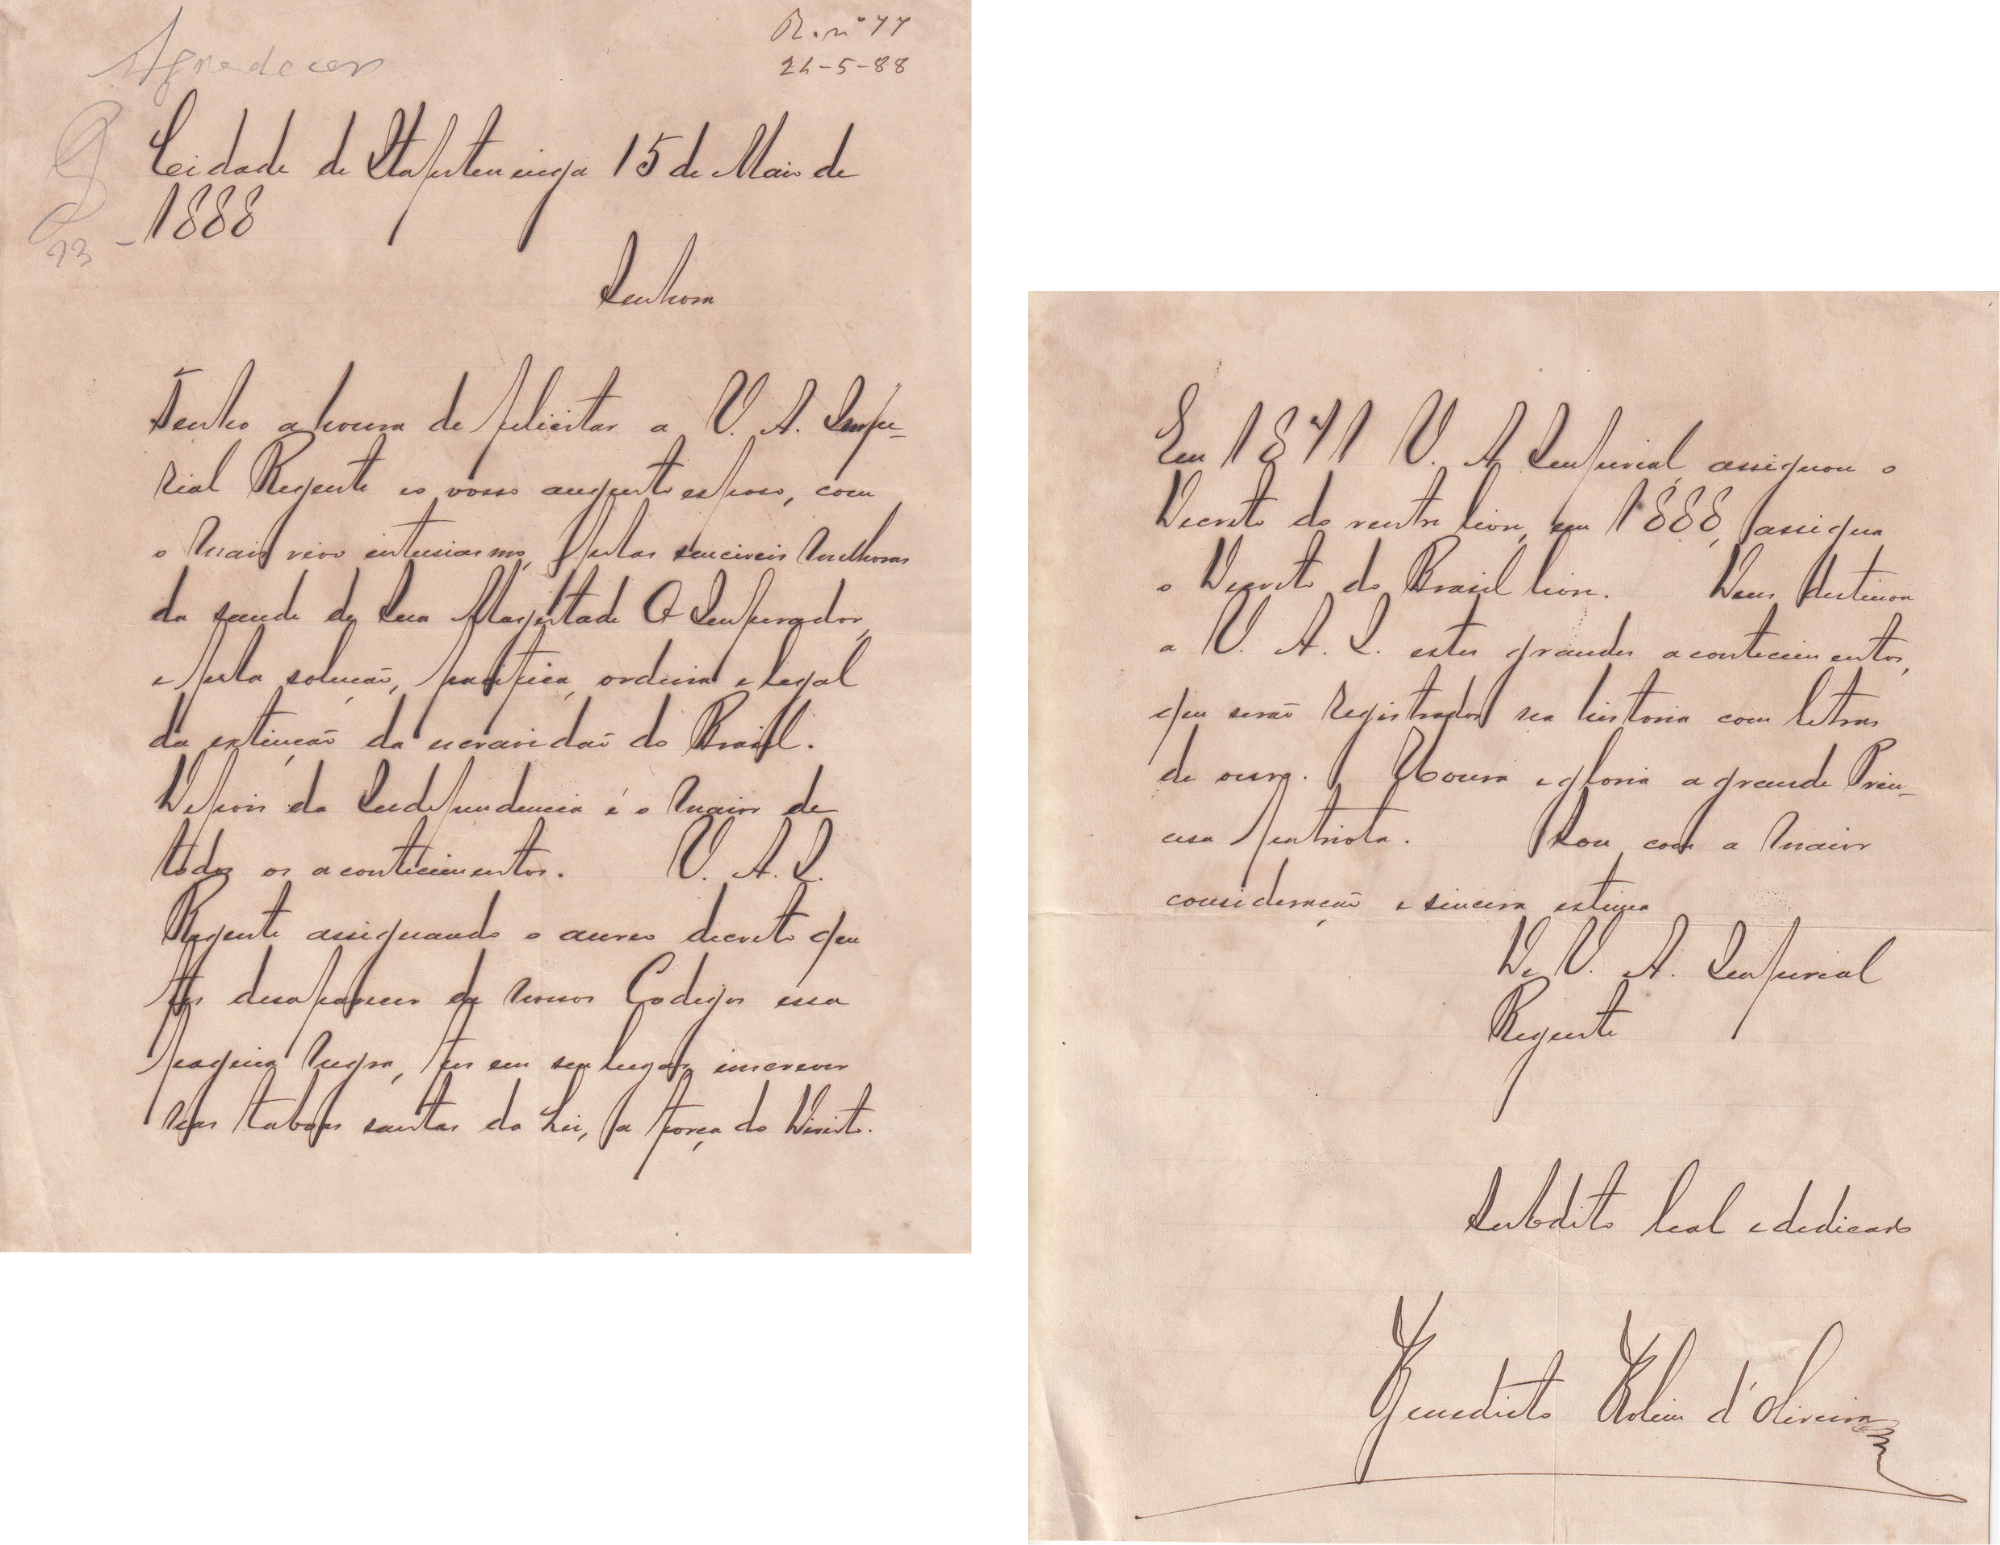 Agradecer
R. nº 77
24-5-88
Cidade de Itapetininga 15 de Maio de
1888
23
Senhora
Tenho a honra de felicitar a V. A. Impe-
rial Regente e o vosso augusto esposo, com
o mais vivo intusiasmo, pelas senciveis melhoras
da saude de Sua Magestade O Imperador,
e pela solução, pacifica, ordeira e legal
da extinção da escravidão do Brasil.
Depois da Independencia é o maior de
todos os acontecimentos. V. A. I.
Regente assignando o aureo decreto que
fez desaparecer de nossos Codigos essa
pagina negra, fez em seu lugar, inscrever
nas taboas santas da Lei, a força do Direito.
Em 1871 V. A Imperial, assignou o
Decreto do ventre livre, em 1888, assigna
o Decreto do Brasil livre. Deus destinou
a V. A. I. estes grandes acontecimentos,
que serão registrados na historia com letras
de ouro. Honra e gloria a grande Prin-
cesa patriota. Sou com a maior
consideração e sincera estima
De V. A. Imperial
Regente
Subdito leal e dedicado
Benedicto Rolim d'Oliveira